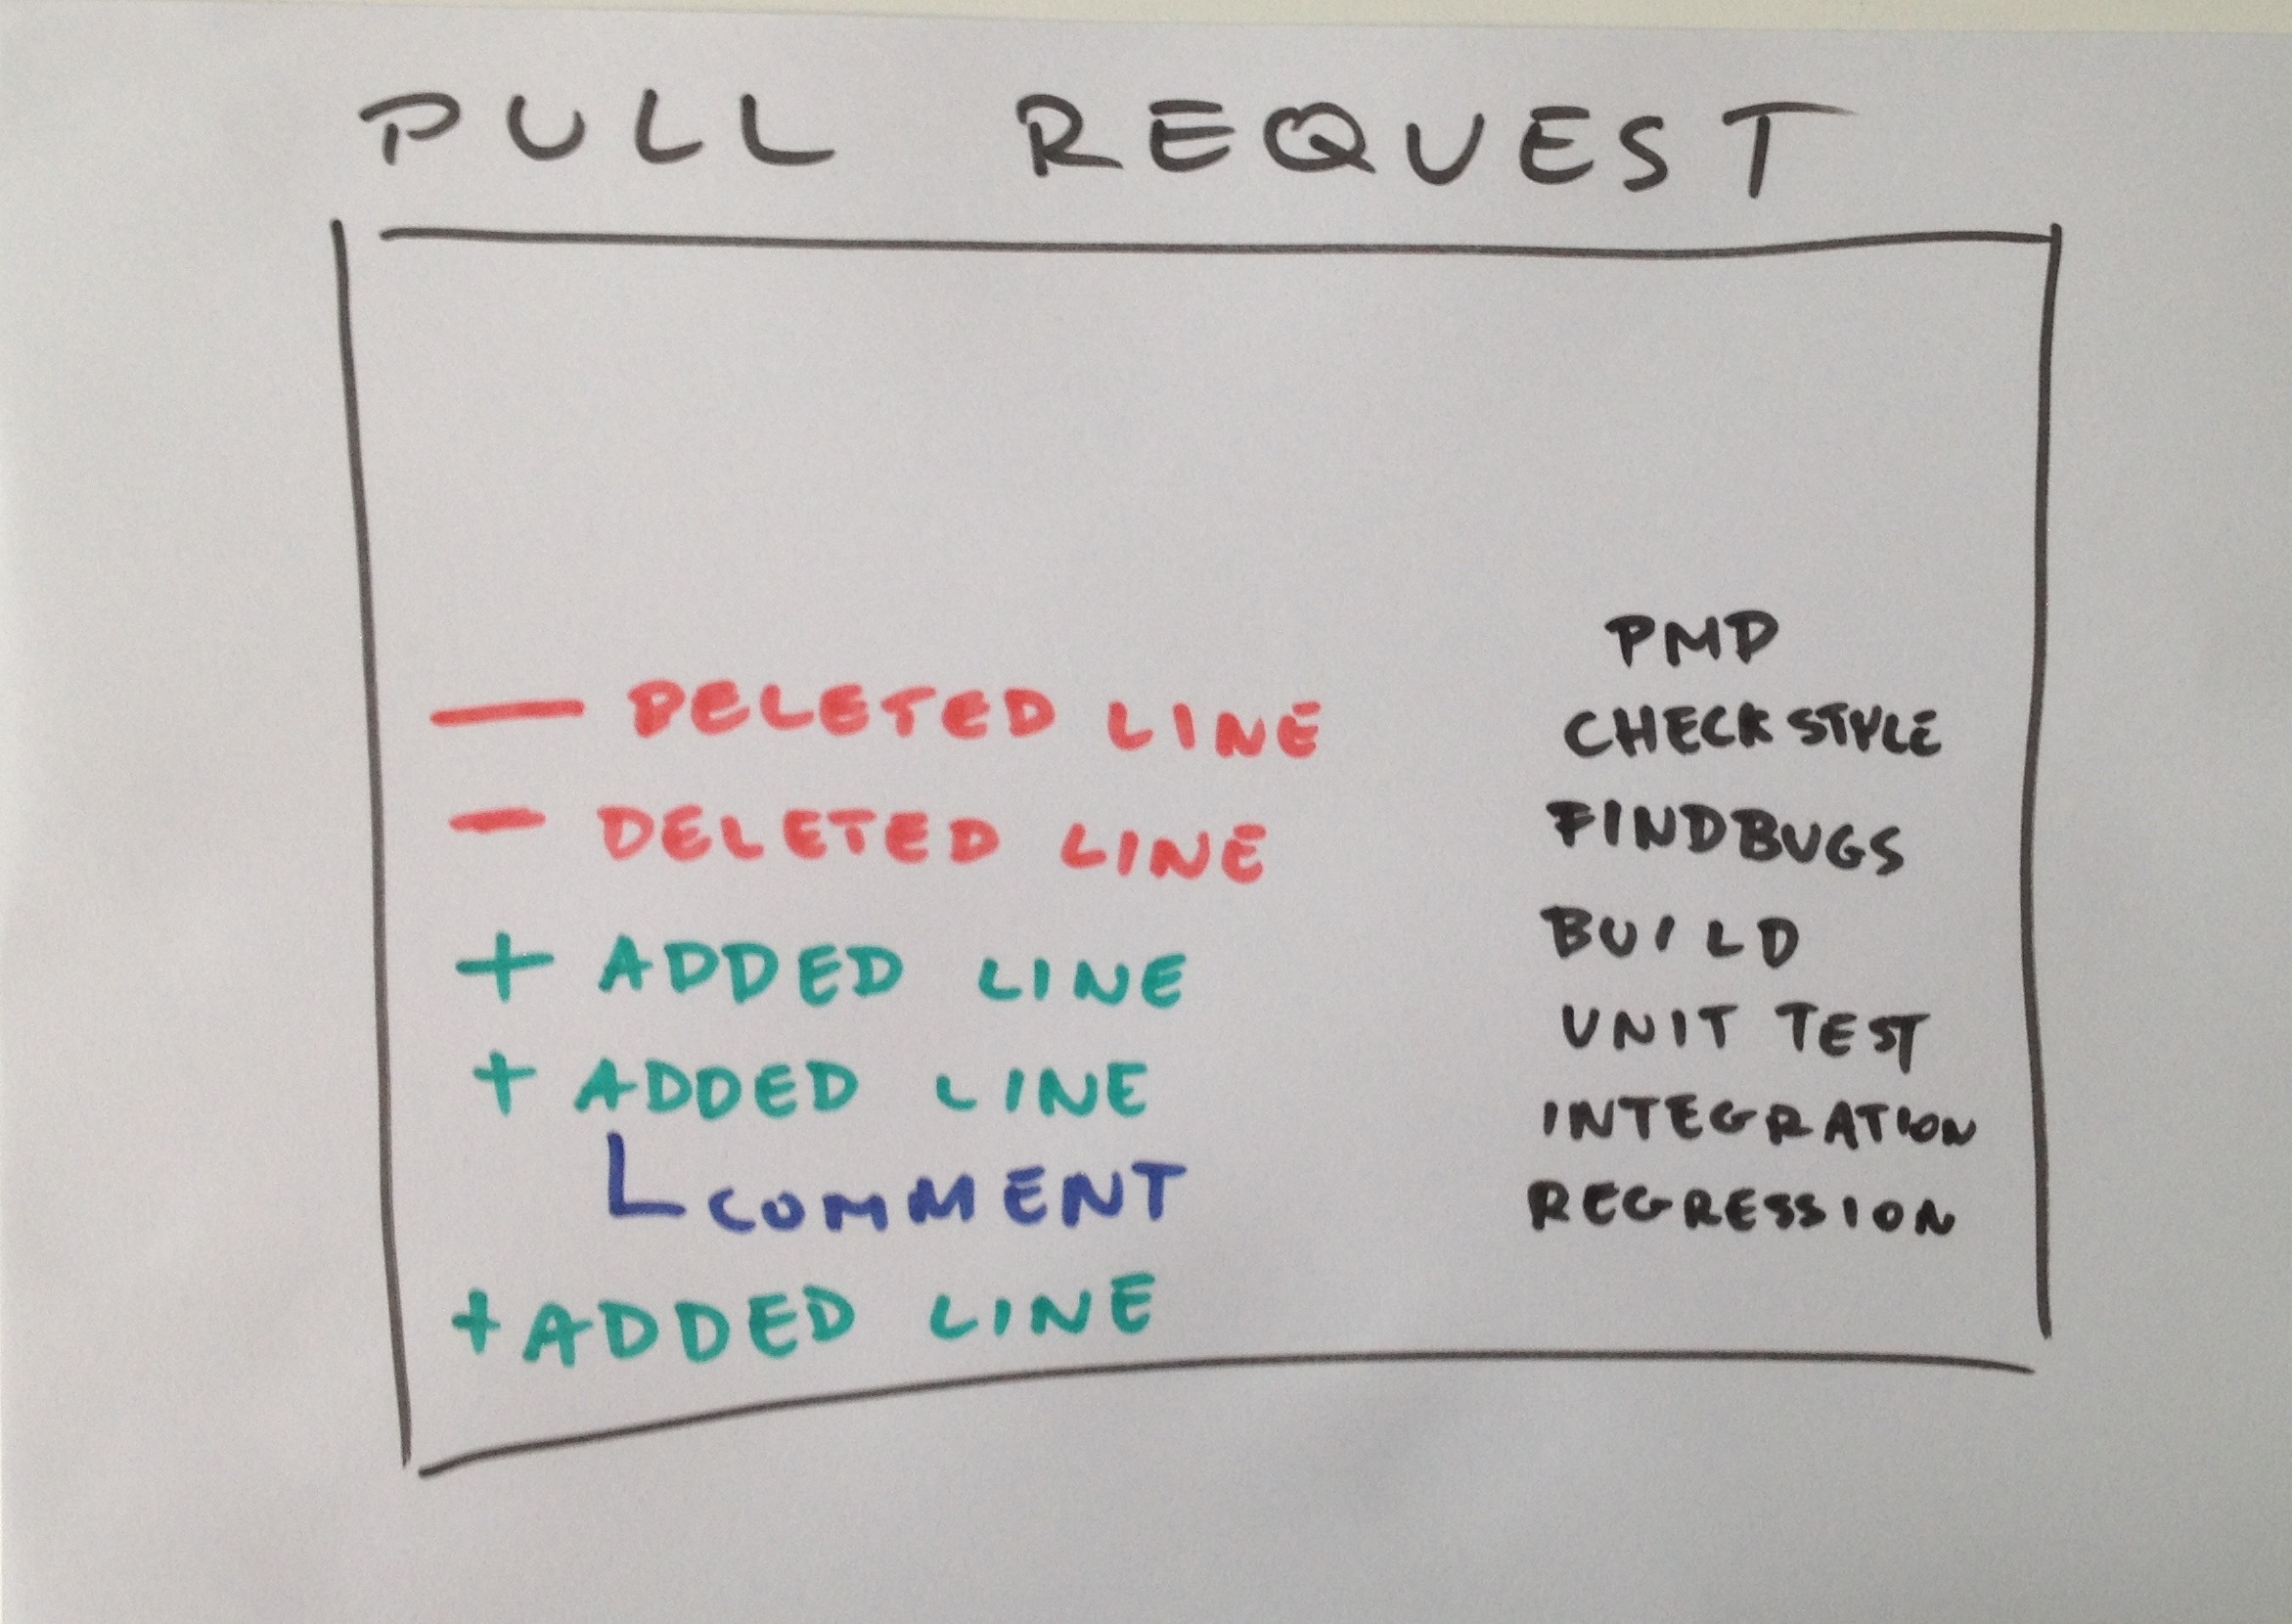 PULL REQUEST
— DELETED LINE
- DELETED LINE
+ ADDED LINE
+ ADDED LINE
COMMENT
+ ADDED LINE
PMD
CHECKSTYLE
FINDBUGS
BUILD
UNIT TEST
INTEGRATION
REGRESSION